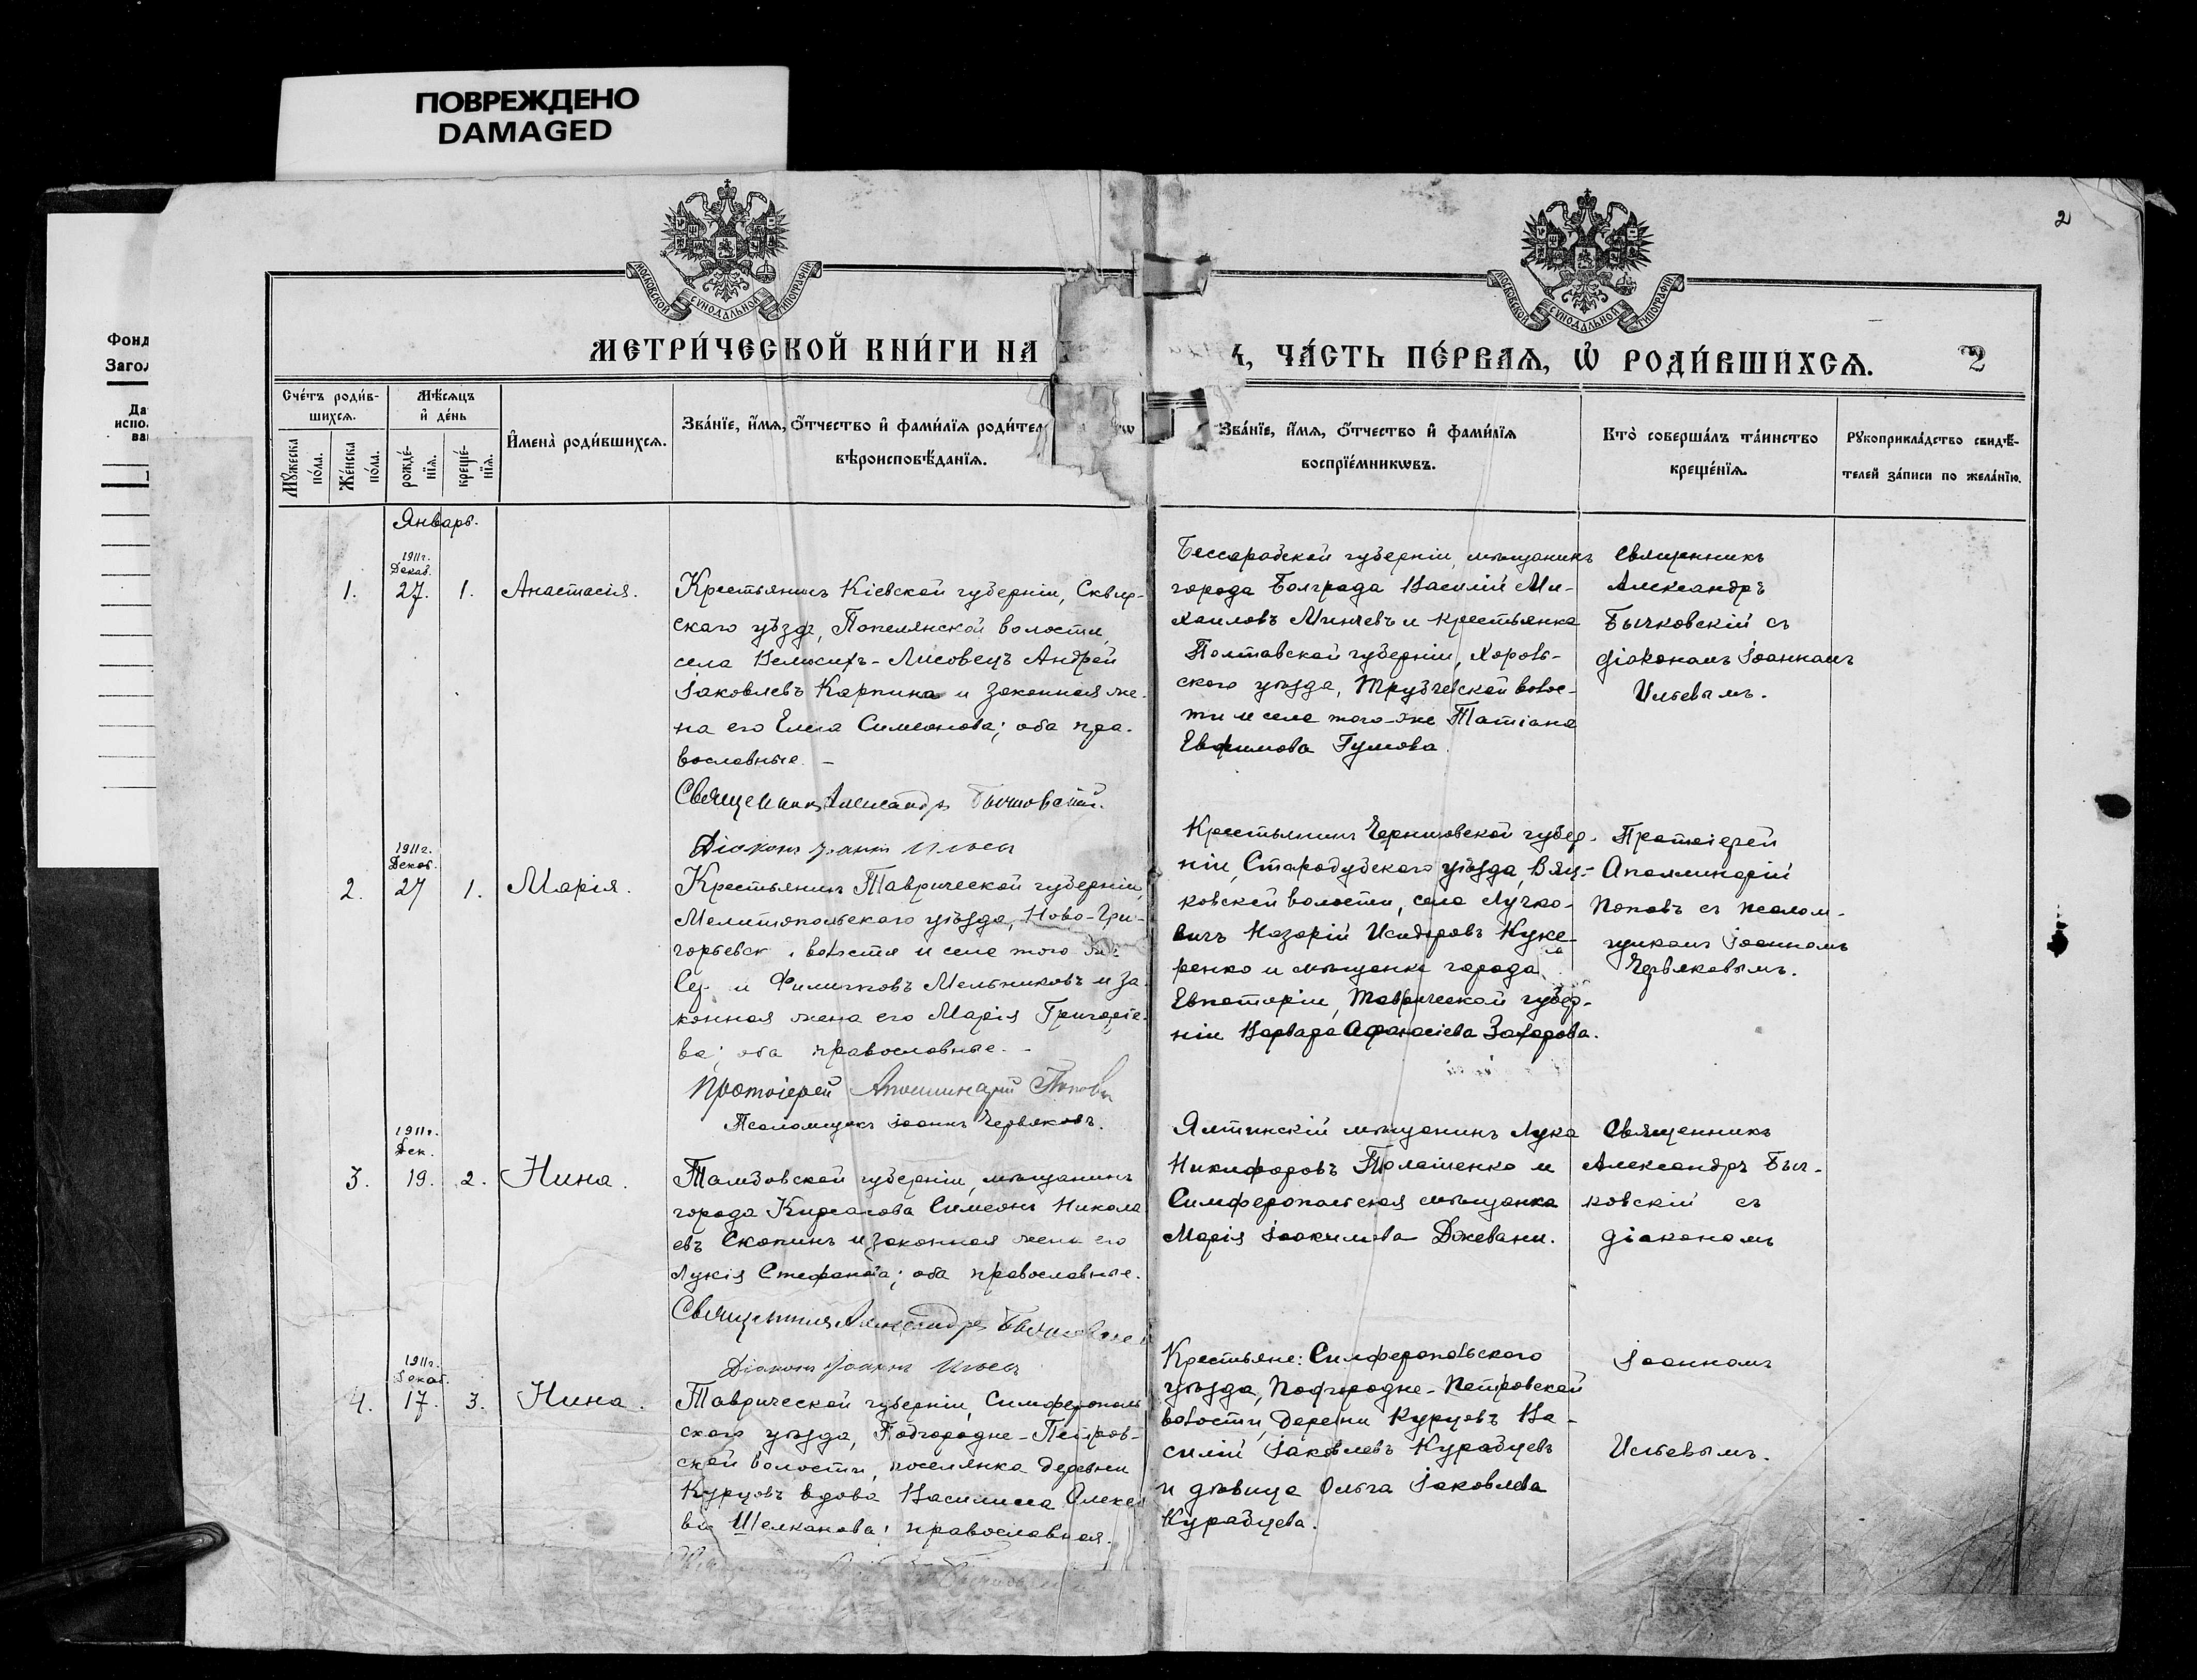 ПОВРЕЖДЕНО
DAMAGED
2
МОСКОВСКОЙ СѴНОДАЛЬНОЙ ТИПОГРАФІИ
МОСКОВСКОЙ СѴНОДАЛЬНОЙ ТИПОГРАФІИ
Фонд
Загол
МЕТРИ́ЧЕСКОЙ КНИ́ГИ НА
ЧА́СТЬ ПЕ́РВАЯ, Ѽ РОДИ́ВШИХСЯ. 2
Сче́тъ роди́в-
шихся.
Мѣ́сяцъ
и҆ де́нь
Мꙋ́жеска
по́ла.
Же́нска
по́ла.
рожде́-
нїя.
креще́-
нїя.
И҆мена̀ роди́вшихся.
Зва́нїе, и҆́мя, ѻ҆́тчество и҆ фами́лїя роди́тел
вѣроисповѣ́данїя.
Зва́нїе, и҆́мя, ѻ҆́тчество и҆ фами́лїя
воспрїе́мникѡвъ.
Кто̀ соверша́лъ та́инство
креще́нїя.
Рꙋкоприкла́дство свидѣ́-
телей за́писи по жела́нїю.
Январь.
1911 г.
Декаб.
1. 27. 1. Анастасія.
Крестьянинъ Кіевской губерніи, Сквир-
скаго уѣзда, Попелянской волости,
села Лисовецъ Андрей
Іаковлевъ Карпина и законная же-
на его Елена Симеонова; оба пра-
вославные. –
Священникъ Александръ Бычковскій.
Діаконъ Іоаннъ Ильевъ
Бессарабской губерніи, мѣщанинъ
города Болграда Василій Ми-
хаиловъ Минчевъ и крестьянка
Полтавской губерніи, Хороль-
скаго уѣзда, волос-
ти и села того-же Татіана
Евфимова Гумова.
Священникъ
Александръ
Бычковскій съ
діакономъ Іоанномъ
Ильевымъ.
1911 г.
Декаб.
2. 27 1. Марія.
Крестьянинъ Таврической губерніи,
Мелитопольскаго уѣзда, Ново-Гри-
горьевск волости и села того же
Филипповъ Мельниковъ и за-
конная жена его Марія Григоріе-
ва; оба православные. –
Протоіерей Аполлинарій Поповъ
Псаломщикъ Іоаннъ Червяковъ.
Крестьянинъ Черниговской губер-
ніи, Стародубскаго уѣзда,
ковской волости, села Лучко-
вичъ Назарій Исидоровъ
ренко и мѣщанка города
Евпаторіи, Таврической губер-
ніи Варвара Афанасіева Захарова.
Протоіерей
Аполлинарій
Поповъ съ псалом-
щикомъ Іоанномъ
Червяковымъ.
1911 г.
Дек.
3. 19. 2. Нина.
Тамбовской губерніи, мѣщанинъ
города Кирсанова Симеонъ Никола
евъ Скопинъ и законная жена его
Лукія Стефанова; оба православные.
Священникъ Александръ Бычковскій
Діаконъ Іоаннъ Ильевъ
Ялтинскій мѣщанинъ Лука
Никифоровъ Полашенко и
Симферопольская мѣщанка
Марія Іоакимова Джевани.
Священникъ
Александръ Быч-
ковскій съ
діакономъ
1911 г.
Декаб.
4. 17. 3. Нина.
Таврической губерніи, Симферополь
скаго уѣзда, Подгородне-Петров-
ской волости, поселянка деревни
Курцовъ вдова Василисса Алексѣ
ва Шелканова; православная.
Крестьяне: Симферопольскаго
уѣзда, Подгородне-Петровской
волости, деревни Курцовъ Ва-
силій Іаковлевъ Курабцевъ
и дѣвица Ольга Іаковлева
Курабцева.
Іоанномъ
Ильевымъ.